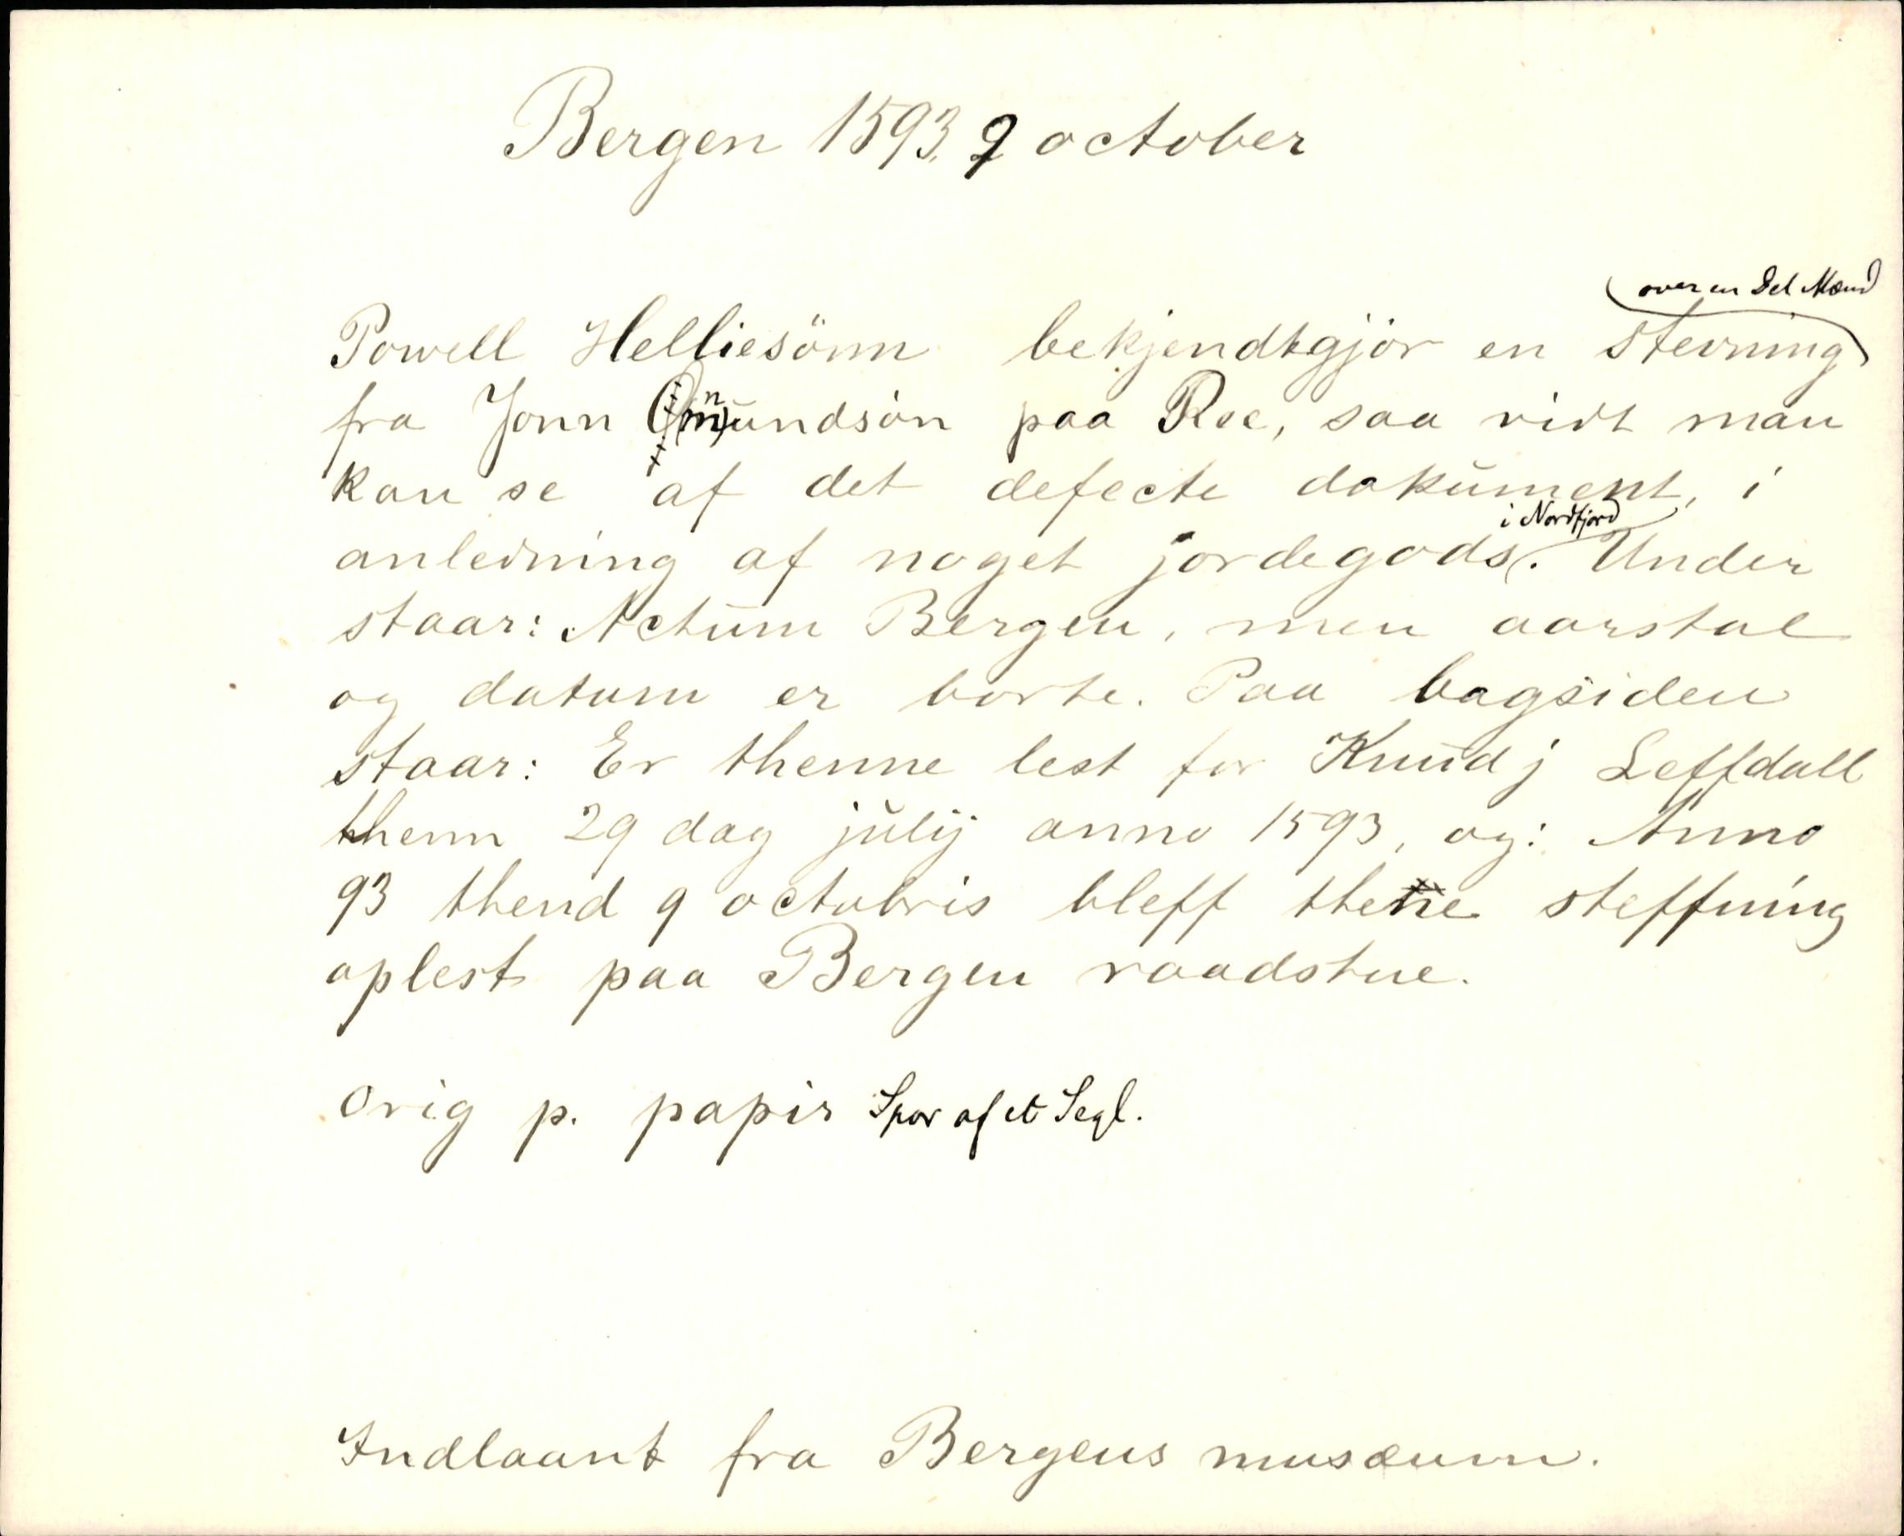 Bergen 1593. 9 october
over en Del Mænd
Powell Helliesönn bekjendtgjör en stevning
fra Jonn O(n)mundsön paa Roe, saa vidt man
kan se af det defecte dokument, i
i Nordfjord
anledning af noget jordegods. Under
staar: Actum Bergen, men aarstal
og datum er borte. Paa bagsiden
staar: Er thenne lest for Knud j Leffdall
thenn 29 dag julij anno 1593, og: Anno
93 thend 9 octobris bleff thene steffning
oplest paa Bergen raadstue.
Orig p. papir Spor af et Segl.
Indlaant fra Bergens musæum.